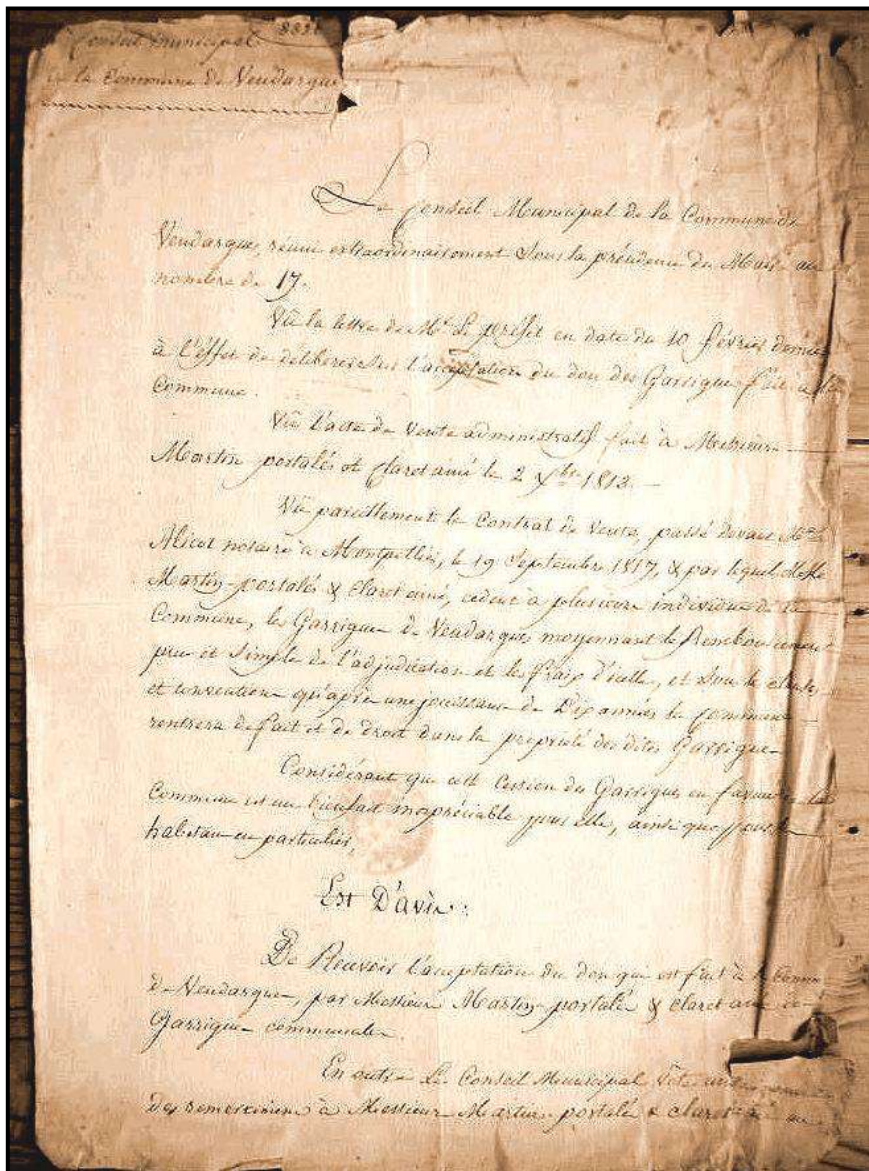 Conseil municipal
de la Commune de Vendargues
Le Conseil Municipal de la Commune de
Vendargues, réuni extraordinairement sous la présidence du Maire au
nombre de 17.
Vû la lettre de Mr Le préfet en date du 10 février dernier
à l'éffet de déliberer sur l'acceptation du don des Garrigues fait à la
Commune.
Vû l'acte de Vente administratif fait à Messieurs
Martin portalés et Claret ainé le 2 Xbre 1813.
Vû pareillement le Contrat de Vente, passé devant Me
Alicot notaire à Montpellier, le 19 Septembre 1817, & par lequel MM
Martin-portalés & Claret ainé, cedent à plusieurs individus de la
Commune, les Garrigues de Vendargues moyennant le Remboursement
pur et simple de l'adjudication et les fraix d'icelle, et sous les clauses
et convention qu'après une jouissance de Dix années la Commune
rentrera de fait et de droit dans la propriété des dites Garrigues
Considérant que cette Cession des Garrigues en faveur de la
Commune est un bienfait inapréciable pour elle, ainsi que pour les
habitans en particulier,
Est D'avis:
De Recevoir l'acceptation du don qui est fait à la Commune
de Vendargues, par Messieurs Martin-portalés & Claret ainé
Garrigues communales.
En outre Le Conseil Municipal Vote
des remercimens à Messieurs Martin portalés & Claret